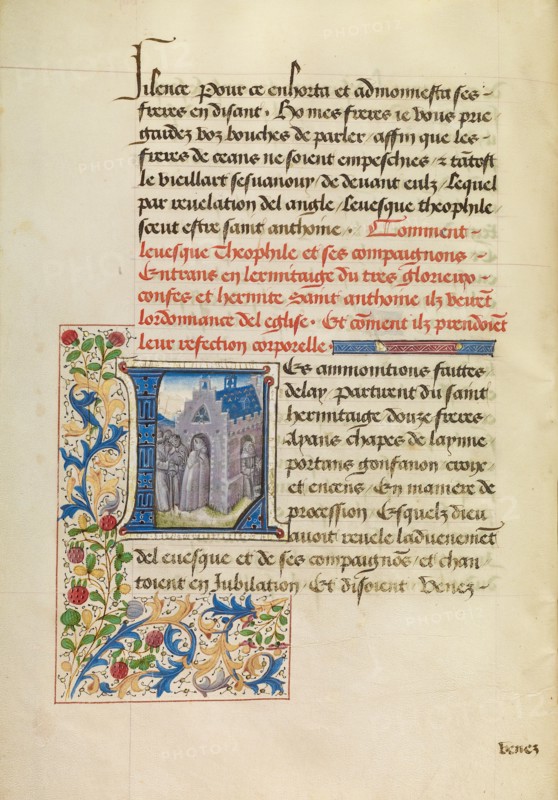 Silence Pour ce enhorta et admonnesta ses-
freres en disant. Ho mes freres ie vous prie
gardez voz bouches de parler/affin que les-
freres de ceans ne soient empeschies/⁊ tātost
le vieillart sesuanouy/de deuant eulz/Lequel
par reuelation del angle/leuesque theophile
sceut estre saint anthoine. Comment-
leuesque Theophile et ses compaignons-
Entrans en lermitaige du tres glorieux-
confes et hermite Saint anthoine ilz veirēt
lordonnance del eglise. Et cōment ilz prendoiēt
leur refection corporelle.
LEs ammonitions faittes
delay partirent du saint
hermitaige douze freres
Ayans chapes de layne
portans gonfanon/croix
et encens/En maniere de
procession Esquelz dieu
lauoit reuele laduenement
del euesque et de ses compaignōs/et chan
toient en Jubilation/Et disoient Venez-
Venez